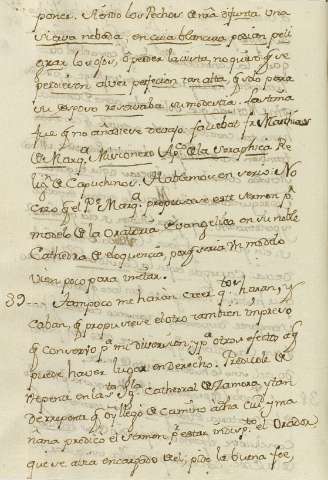 poner. Siendo los Pechos de nrã difunta una
viva nebada, en cuia blancura podian peli
grar los ojos, ô perder la vista, no quiso q̃ se
perdiesen al ver perfeccion tan alta, q̃ solo para
su esposo reservaba su modestia. Lastima
fue q̃ no añadiese de caso. faltabat Fr. Mathias
de Marqª Misionero Apco de la Seraphica Re
lign de Capuchinos. Hablemos en verso. No
creo q̃ el Pe Marqª propusiese este sermon pª
modelo de la Oratoria Evangelica en su noble
Cathedra de eloquencia, porq̃ seria un modelo
bien poco para imitar.
39... Tampoco me haran creer q̃ haran, y
caban, q̃ propusiese el otro tambien impreso
q̃ convertio pª mi diversion, y pª otros efectos q̃
puede haver lugar en derecho. Predicole de
repente en la Sta Iglª Cathedral de Zamora, y tan
de repente q̃ llegó de camino a dha Ciud y ma
ñana predicó el sermon, pr estar indispto el Orador,
que se avia encargado de el, pide la buena fee,